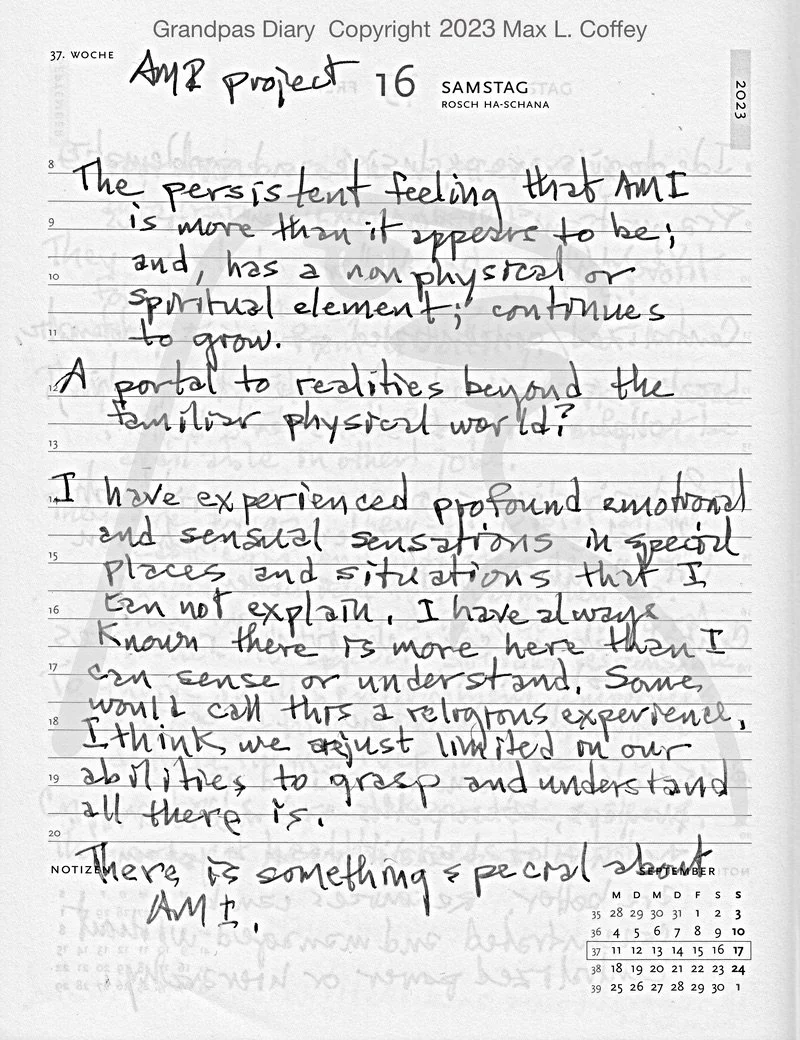 Grandpas Diary Copyright 2023 Max L. Coffey
37. WOCHE
AMI project
16
SAMSTAG
ROSCH HA-SCHANA
2023
8
The persistent feeling that AMI
9
is more than it appears to be;
and, has a nonphysical or
10
spiritual element; continues
11
to grow.
12
A portal to realities beyond the
familiar physical world?
13
I have experienced profound emotional
14
and sensual sensations in special
15
places and situations that I
16
can not explain. I have always
known there is more here than I
17
can sense or understand. Some
would call this a religious experience.
18
I think we are just limited in our
19
abilities to grasp and understand
all there is.
20
NOTIZEN
There is something special about
AMI.
SEPTEMBER
M D M D F S S
35 28 29 30 31 1 2 3
36 4 5 6 7 8 9 10
37 11 12 13 14 15 16 17
38 18 19 20 21 22 23 24
39 25 26 27 28 29 30 1